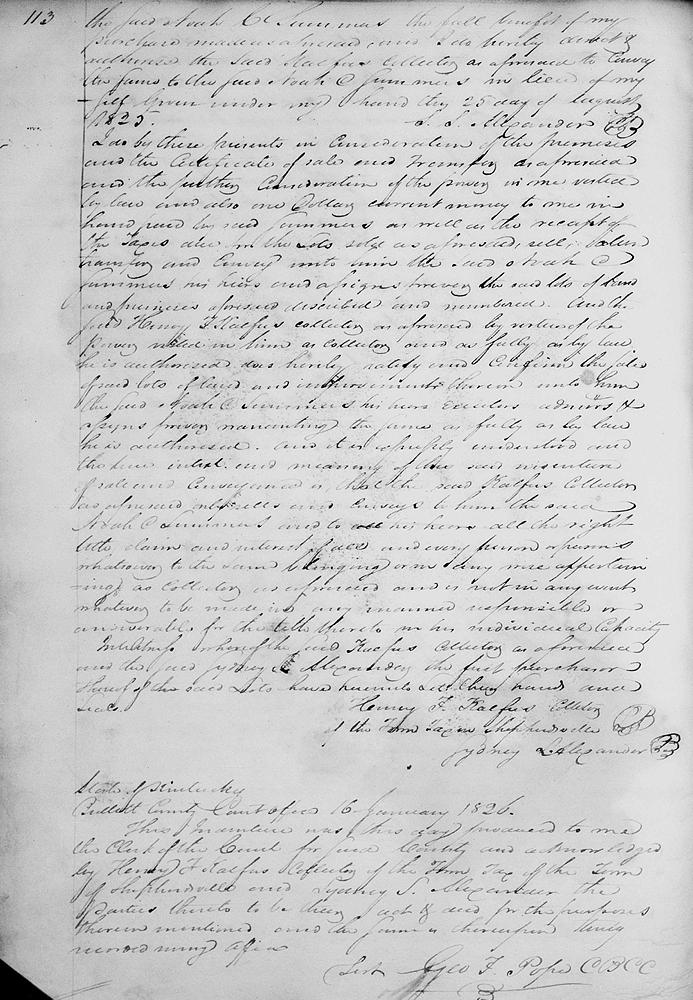 113
the said Noah C Summers the full benefit of my
purchase made as aforesaid, and I do hereby direct &
authorise the said Kalfus Collector as aforesaid to Convey
the same to the said Noah C Summers in lieu of my
self Given under my hand this 25 day of August
1825. S. S. Alexander
I do by these presents in Consideration of the premises
and the Certificate of sale and transfer as aforesaid
and the further Consideration of the power in me vested
by law and also one Dollar current money to me in
hand paid by said Summers as well as the receipt of
the Taxes due for the Lots sold as aforesaid, sell,
transfer and Convey unto him the said Noah C
Summers his heirs and assigns forever the said lots of land
and premises aforesaid described and numbered. And the
said Henry F Kalfus collector as aforesaid by virtue of the
power vested in him as collector and as fully as by law
he is authorised does hereby ratify and Confirm the sale
of said lots of land and improvements thereon unto him
the said Noah C Summers his heirs Executors admrs &
assigns forever warranting the same as fully as by law
he is authorised. and it is expressly understood and
the true intent and meaning of this said indenture
of sale and Conveyance is, that the said Kalfus Collector
as aforesaid only sells and Conveys to him the said
Noah C Summers and to his heirs all the right
title, claim and interest of all and every person or persons
whatsoever to the same belonging or in any wise appertain
-ing as Collector as aforesaid and is not in any event
whatever to be made in any manner responsible or
answerable for the title thereto in his individual Capacity
In witness whereof the said Kalfus Collector as aforesaid
and the said Sydney S Alexander the first purchaser
thereof of the said Lots have hereunto set their hands and
seals.
Henry F. Kalfus Collector
of the Town Tax in Shepherdsville
Sydney S Alexander
State of Kentucky
Bullitt County Court office 16 January 1826.
This Indenture was this day produced to me
the Clerk of the Court for said County and acknowledged
by Henry F Kalfus Collector of the Town Tax of the Town
of Shepherdsville and Sydney S. Alexander the
parties thereto to be their act & deed for the purposes
therein mentioned and the same is thereupon duly
recorded in my office
Test Geo F. Pope CBCC